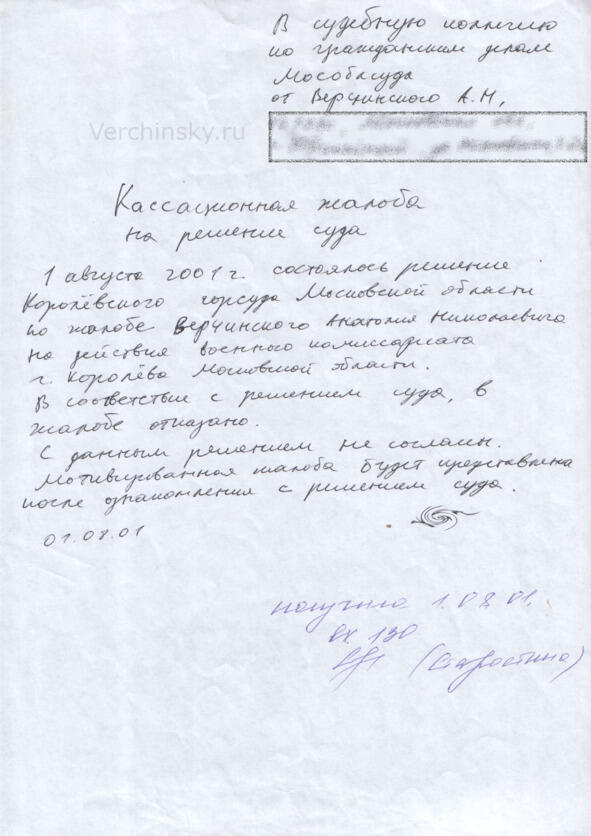 В судебную коллегию
по гражданским делам
Мособлсуда
от Верчинского А.Н,
Verchinsky.ru
Кассационная жалоба
на решение суда
1 августа 2001 г. состоялось решение
Королёвского горсуда Московской области
по жалобе Верчинского Анатолия Николаевича
на действия военного комиссариата
г. Королёва Московской области.
В соответствие с решением суда, в
жалобе отказано.
С данным решением не согласны.
Мотивированная жалоба будет представлена
после ознакомления с решением суда.
01.08.01
получила 1.08.01.
вх 130
(Старостина)